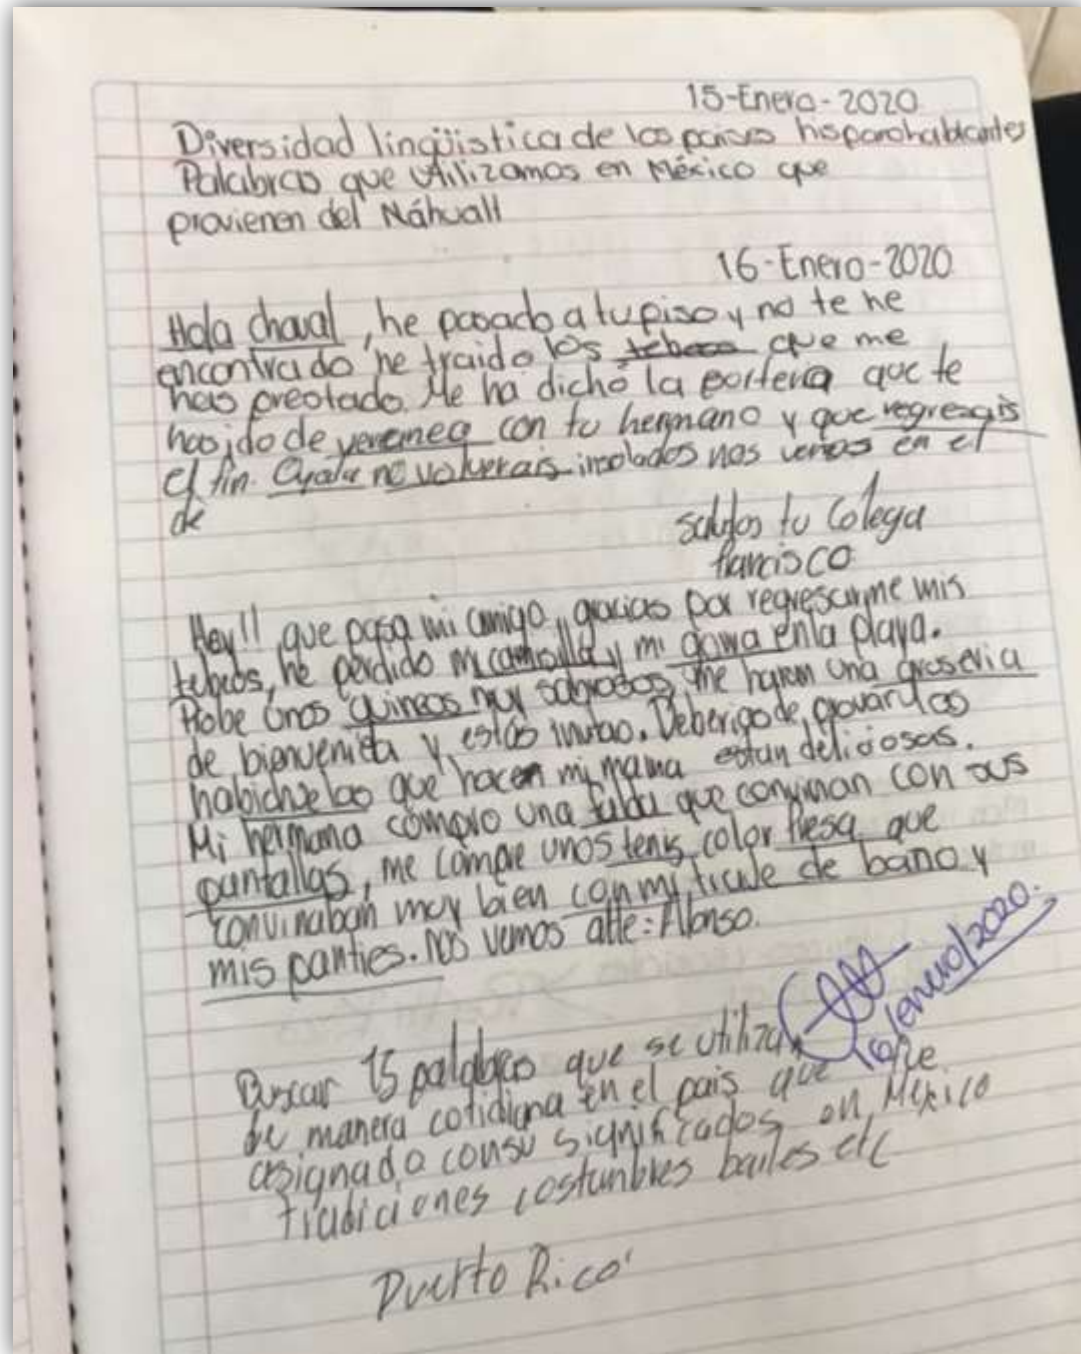 15-Enero-2020
Diversidad lingüistica de los paises hispanohablantes
Palabras que utilizamos en México que
provienen del Náhuatl
16-Enero-2020
Hola chaval, he pasado a tu piso y no te he
encontrado he traido los que me
has prestado. Me ha dicho la portera que te
has ido de con tu hermano y que regresais
el fin. Ojala no volverais insolados nos vemos en el
de
saludos tu colega
francisco
Hey!! que pasa mi amigo, gracias por regresarme mis
tebeos, he perdido mi camisilla y mi goma en la playa.
Probe unos guineos muy sabrosos, me hayan una groseria
de bienvenida y estás invitao. Deberias de provar las
habichuelas que hacen mi mama estan deliciosas.
Mi hermana compro una falda que convinan con sus
pantallas, me compre unos tenis color fresa que
convinaban muy bien con mi traje de baño y
mis panties. Nos vemos atte: Alonso.
16/enero/2020.
Buscar 15 palabras que se utilizan
de manera cotidiana en el pais que fue
asignado consu significados en México
tradiciones costumbres bailes etc
Puerto Rico